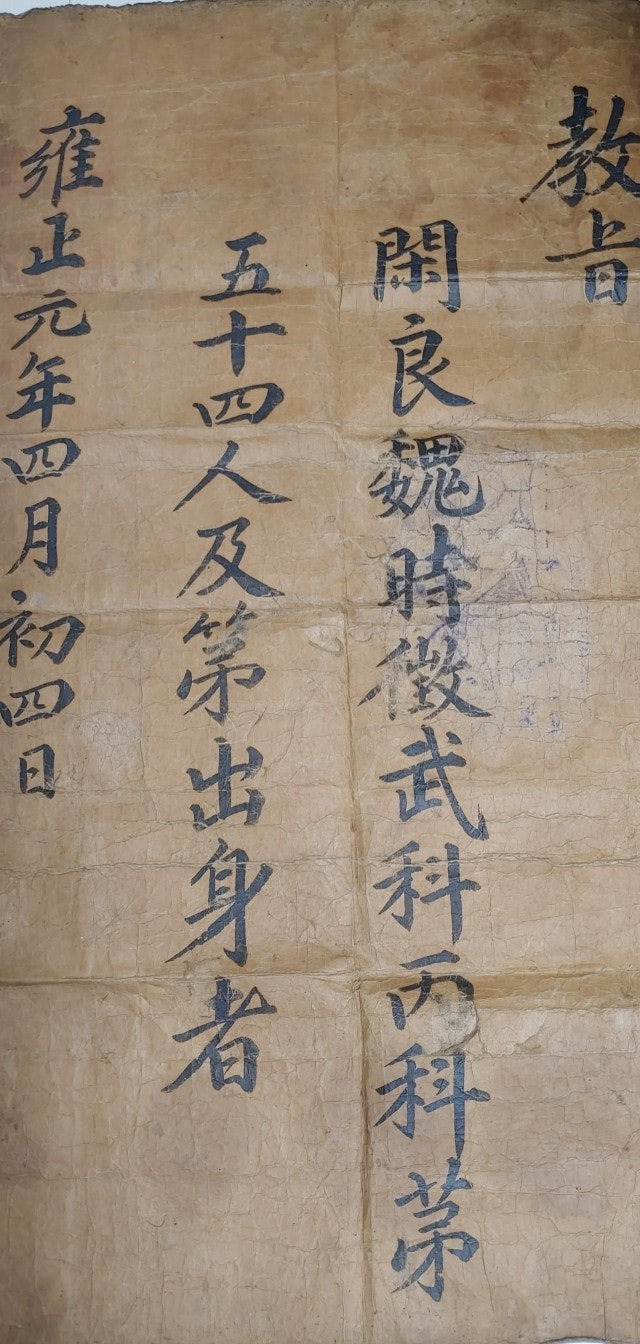 教旨
閑良魏時徵武科丙科第
五十四人及第出身者
雍正元年四月初四日